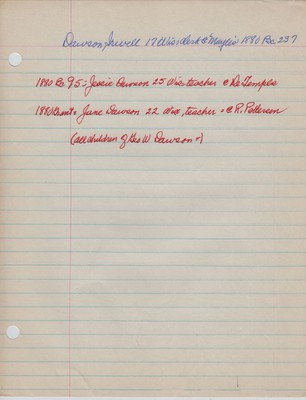 Dawson, Jewell 17 Wis clerk @ Mayfie 1880 Ba 237
1880 Ba 95 - Jessie Dawson 25 Wis teacher @ De Temple
1880 Grant Jane Dawson 22 Wis, teacher - @ R. Petersen
(all children of Geo W Dawson -)